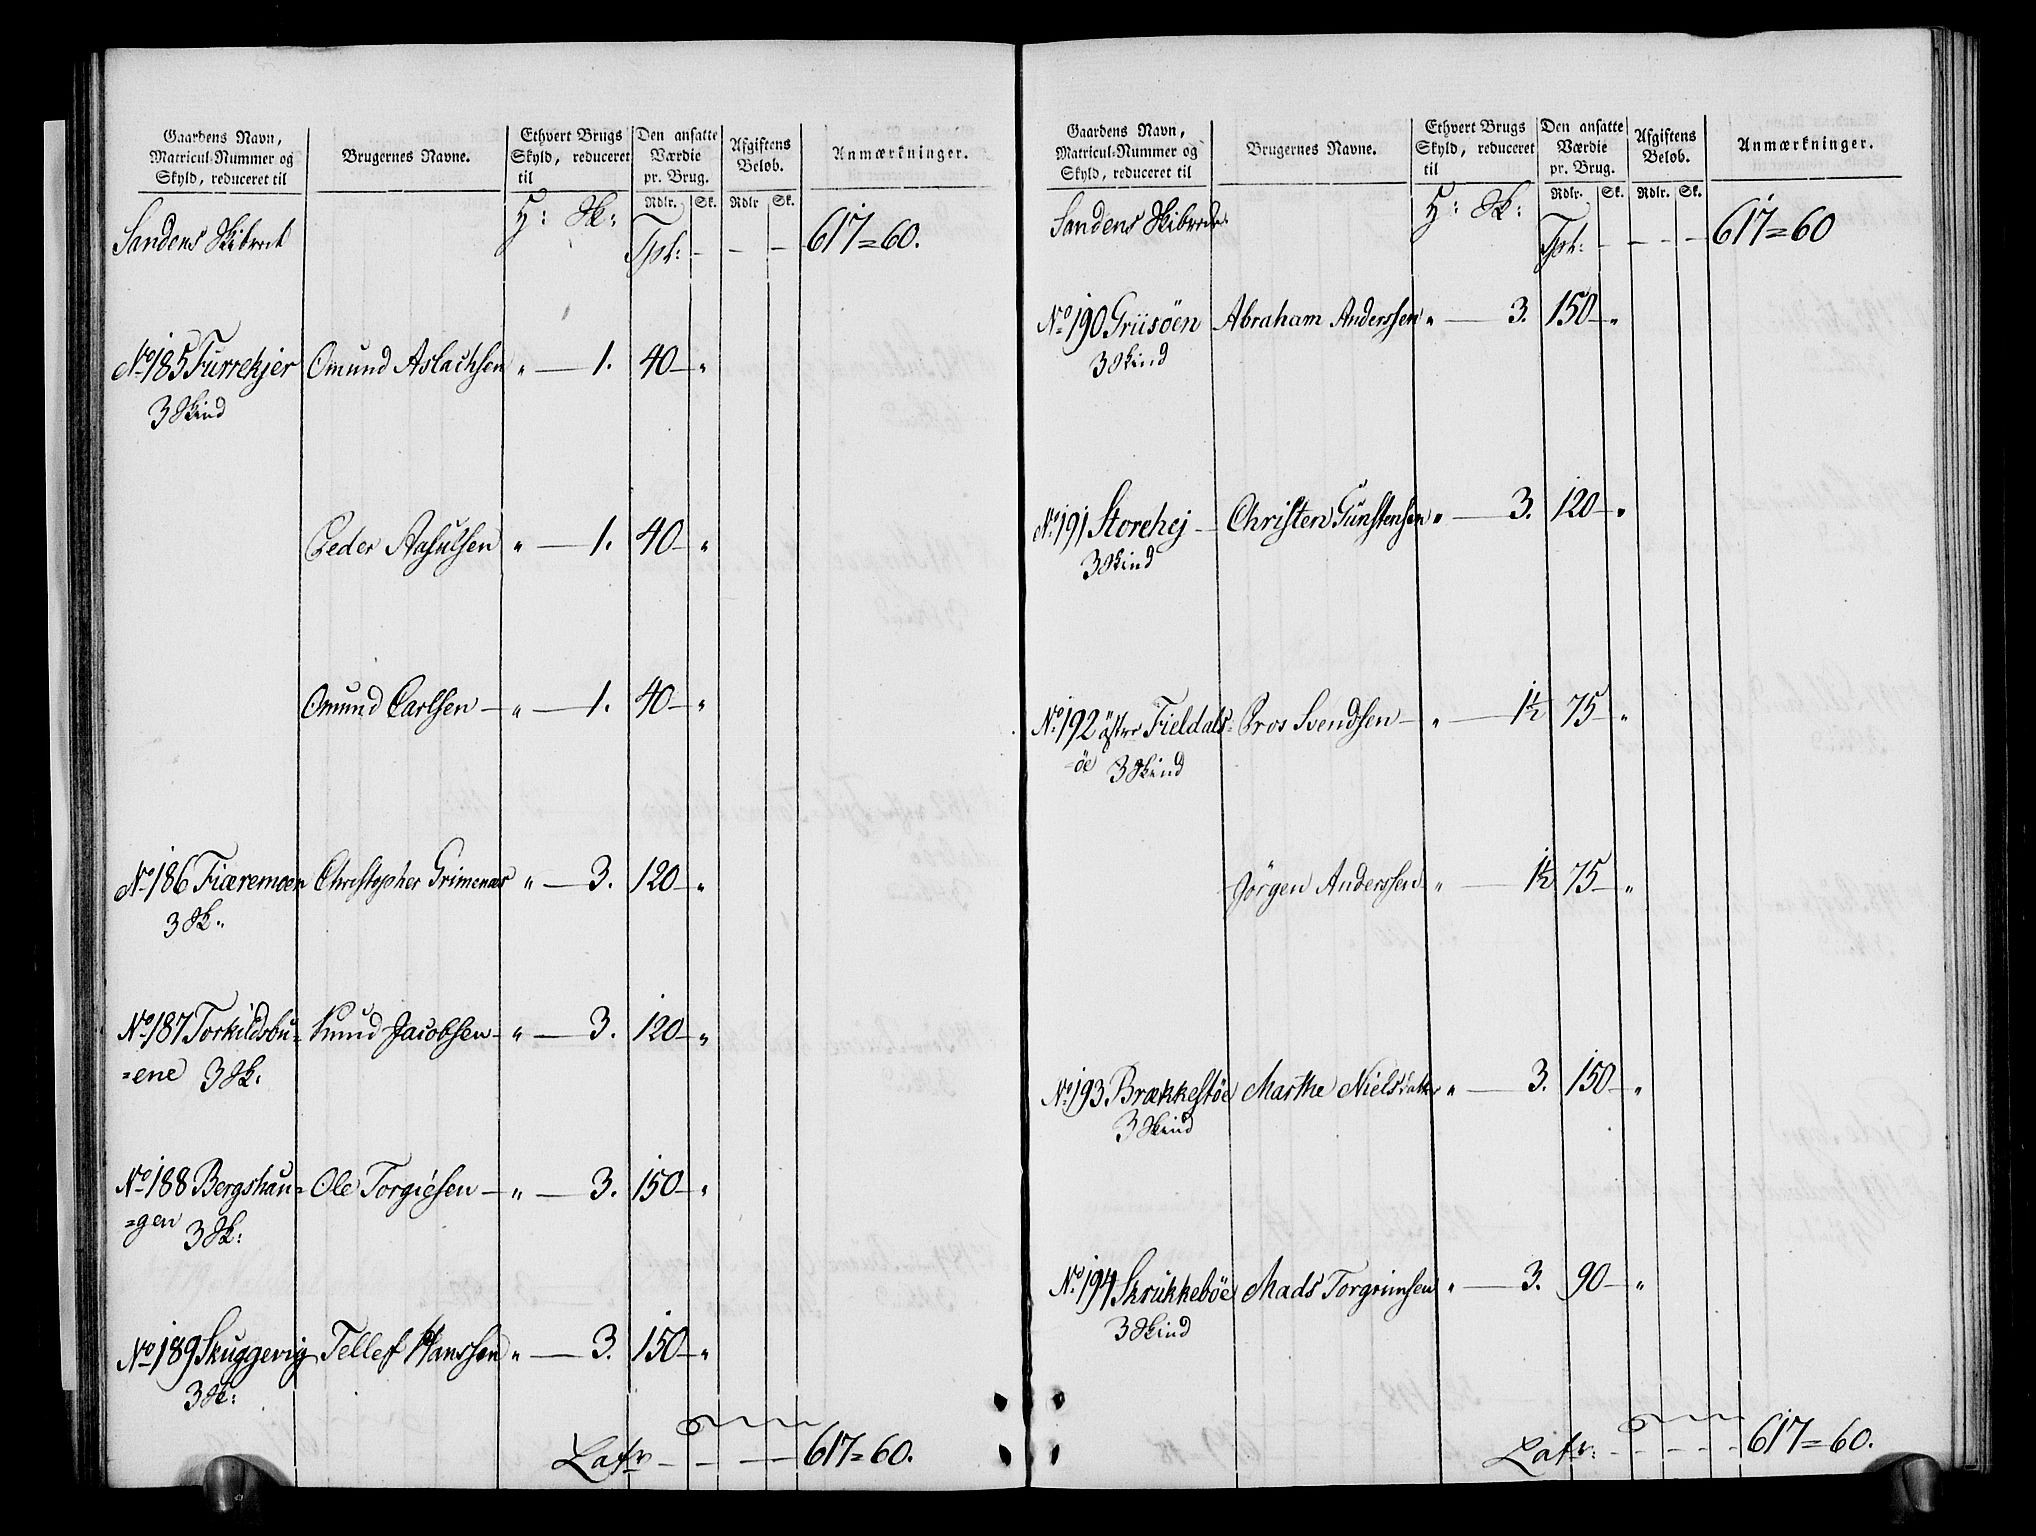 Gaardens Navn, Matricul-Nummer og Skyld, reduceret til | Brugernes Navne. | Ethvert Brugs Skyld, reduceret til | Den ansatte Værdie pr. Brug. | Afgiftens Beløb. | Anmærkninger.
H: Sk: | Rdlr. Sk. | Rdlr Sk.
Sandens Skibred Tpt: - - - 617=60.
No 185 Furrekjer Omund Aslachsen " — 1. 40 — "
3 Skind
Peder Aasulsen " — 1. 40 — "
Omund Carlsen — " — 1. 40 — "
No 186 Fiæremoen Christopher Grimenæs " — 3. 120 — "
3 Sk:
No 187 Torkildsbu= Knud Jacobsen — " — 3. 120 — "
=ene 3 Sk:
No 188 Bergshau= Ole Torgiesen — " — 3. 150 — "
=gen 3 Sk:
No 189 Skuggevig Tellef Hanssen " — 3. 150 — "
3 Sk:
Latr — - — 617=60.
Gaardens Navn, Matricul-Nummer og Skyld, reduceret til | Brugernes Navne. | Ethvert Brugs Skyld, reduceret til | Den ansatte Værdie pr. Brug. | Afgiftens Beløb. | Anmærkninger.
H: Sk: | Rdlr. Sk. | Rdlr. Sk.
Sandens Skibrede Tpt: - - - - 617=60
No 190 Griisöen Abraham Anderssen " — 3. 150 — "
3 Skind
No 191 Storehej — Christen Gunstensen " — 3. 120 — "
3 Skind
No 192 öster Fieldals= Oros Svendsen — " — 1½ 75 — "
=öe 3 Skind
Jörgen Anderssen — " — 1½ 75 — "
No 193 Brækkestöe Marthe Nielsdatter " — 3. 150 — "
3 Skind
No 194 Skrukkeböe Mads Torgrimsen " — 3. 90 — "
3 Skind
Latr: - - - - 617=60.